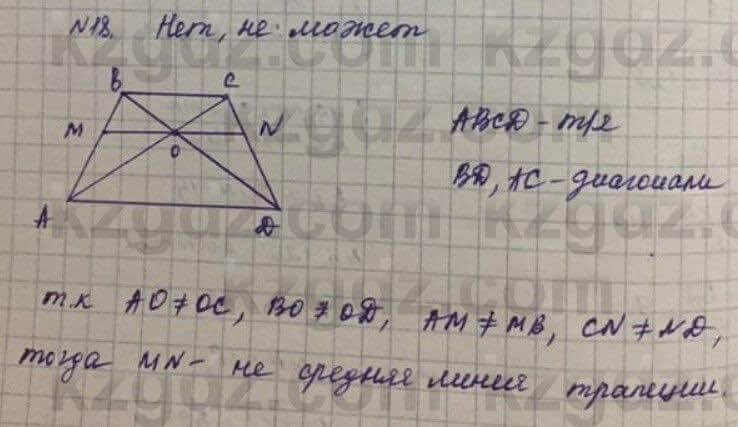 N18. Нет, не может
B C
M N
O
A D
ABCD - тр/я
BD, AC - диагонали
т.к AO ≠ OC, BO ≠ OD, AM ≠ MB, CN ≠ ND,
тогда MN - не средняя линия трапеции.
kzgdz.com